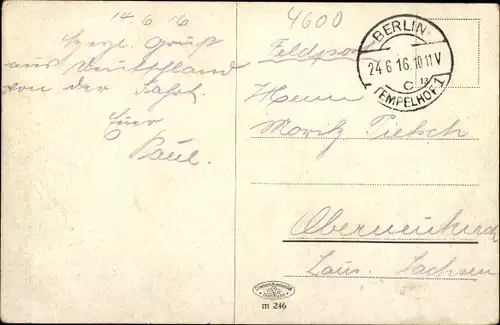 14.6.16
Herzl. Gruß
aus Deutschland
von der Fahrt.
Euer
Paul.
4600
Feldpost
BERLIN
24.6.16.10-11V
C 13
TEMPELHOF 1
Herrn
Moritz Pietsch
Oberneukirch
Laus. Sachsen
m 246